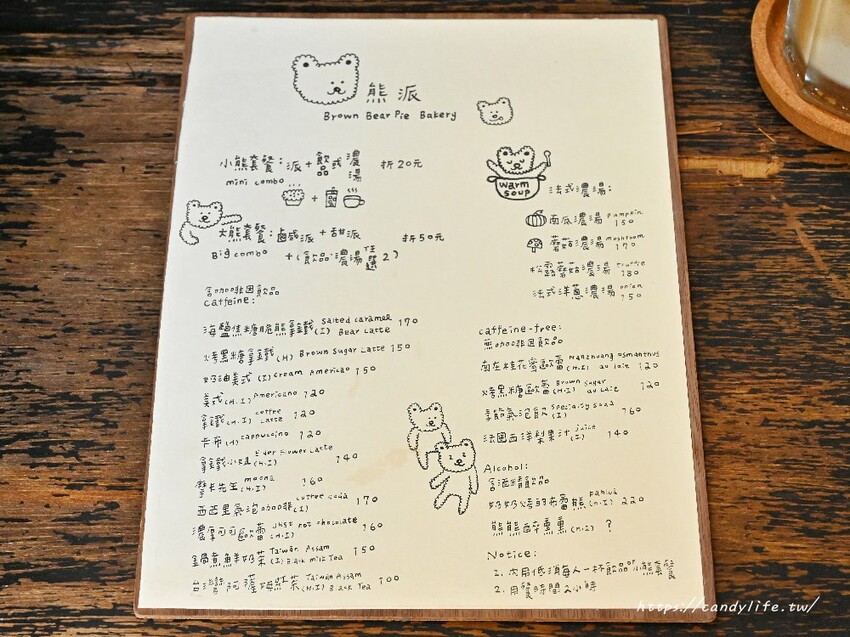 熊派
Brown Bear Pie Bakery
小熊套餐：派＋飲品或濃湯 折20元
mini combo
大熊套餐：鹹派＋甜派 折50元
Big combo ＋(飲品、濃湯 任選2)
含咖啡因飲品
caffeine:
海鹽焦糖脆熊拿鐵(I) Salted caramel Bear Latte 170
烤黑糖拿鐵(H) Brown Sugar Latte 150
奶油美式(I) Cream Americao 150
美式(H.I) Americano 120
拿鐵(H.I) coffee Latte 120
卡布(H) cappuccino 120
拿鐵小姐(H.I) Elder Flower Latte 140
摩卡先生(H.I) mocha 160
西西里氣泡咖啡(I) coffee soda 170
濃厚可可歐蕾(H.I) Just hot chocolate 160
鍋煮鮮奶茶(I) Taiwan Assam Black milk Tea 150
台灣阿薩姆紅茶(H.I) Taiwan Assam Black Tea 100
warm soup
法式濃湯：
南瓜濃湯 pumpkin 150
蘑菇濃湯 mushroom 170
松露蘑菇濃湯 truffle 180
法式洋蔥濃湯 onion 150
caffeine-free:
無咖啡因飲品
南庄桂花蜜歐蕾(H.I) Nanzhuang osmanthus au lait 120
烤黑糖歐蕾(H.I) Brown sugar au lait 120
季節氣泡飲(I) Specialty soda 160
法國西洋梨果汁(I) juice 140
Alcohol:
含酒精飲品
奶奶烤的布蕾熊(H.I) 220
熊熊醉熏熏(H.I) ?
Notice:
1. 內用低消每人一杯飲品or小熊套餐
2. 用餐時間2小時
https://candylife.tw/